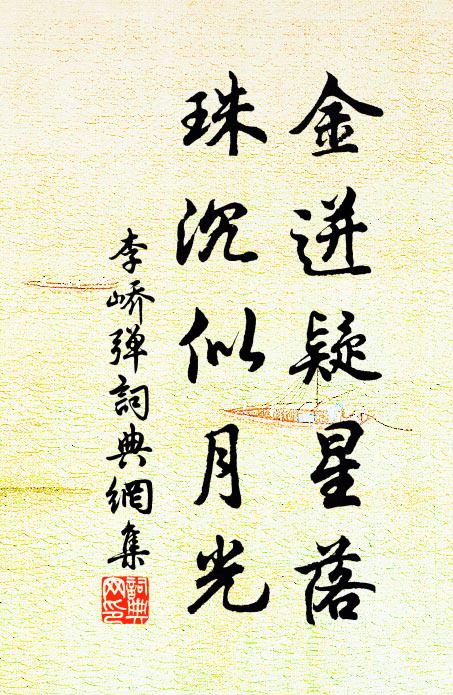 金迸疑星落
珠沉似月光
李峤弹詞典網集
詞典
网印